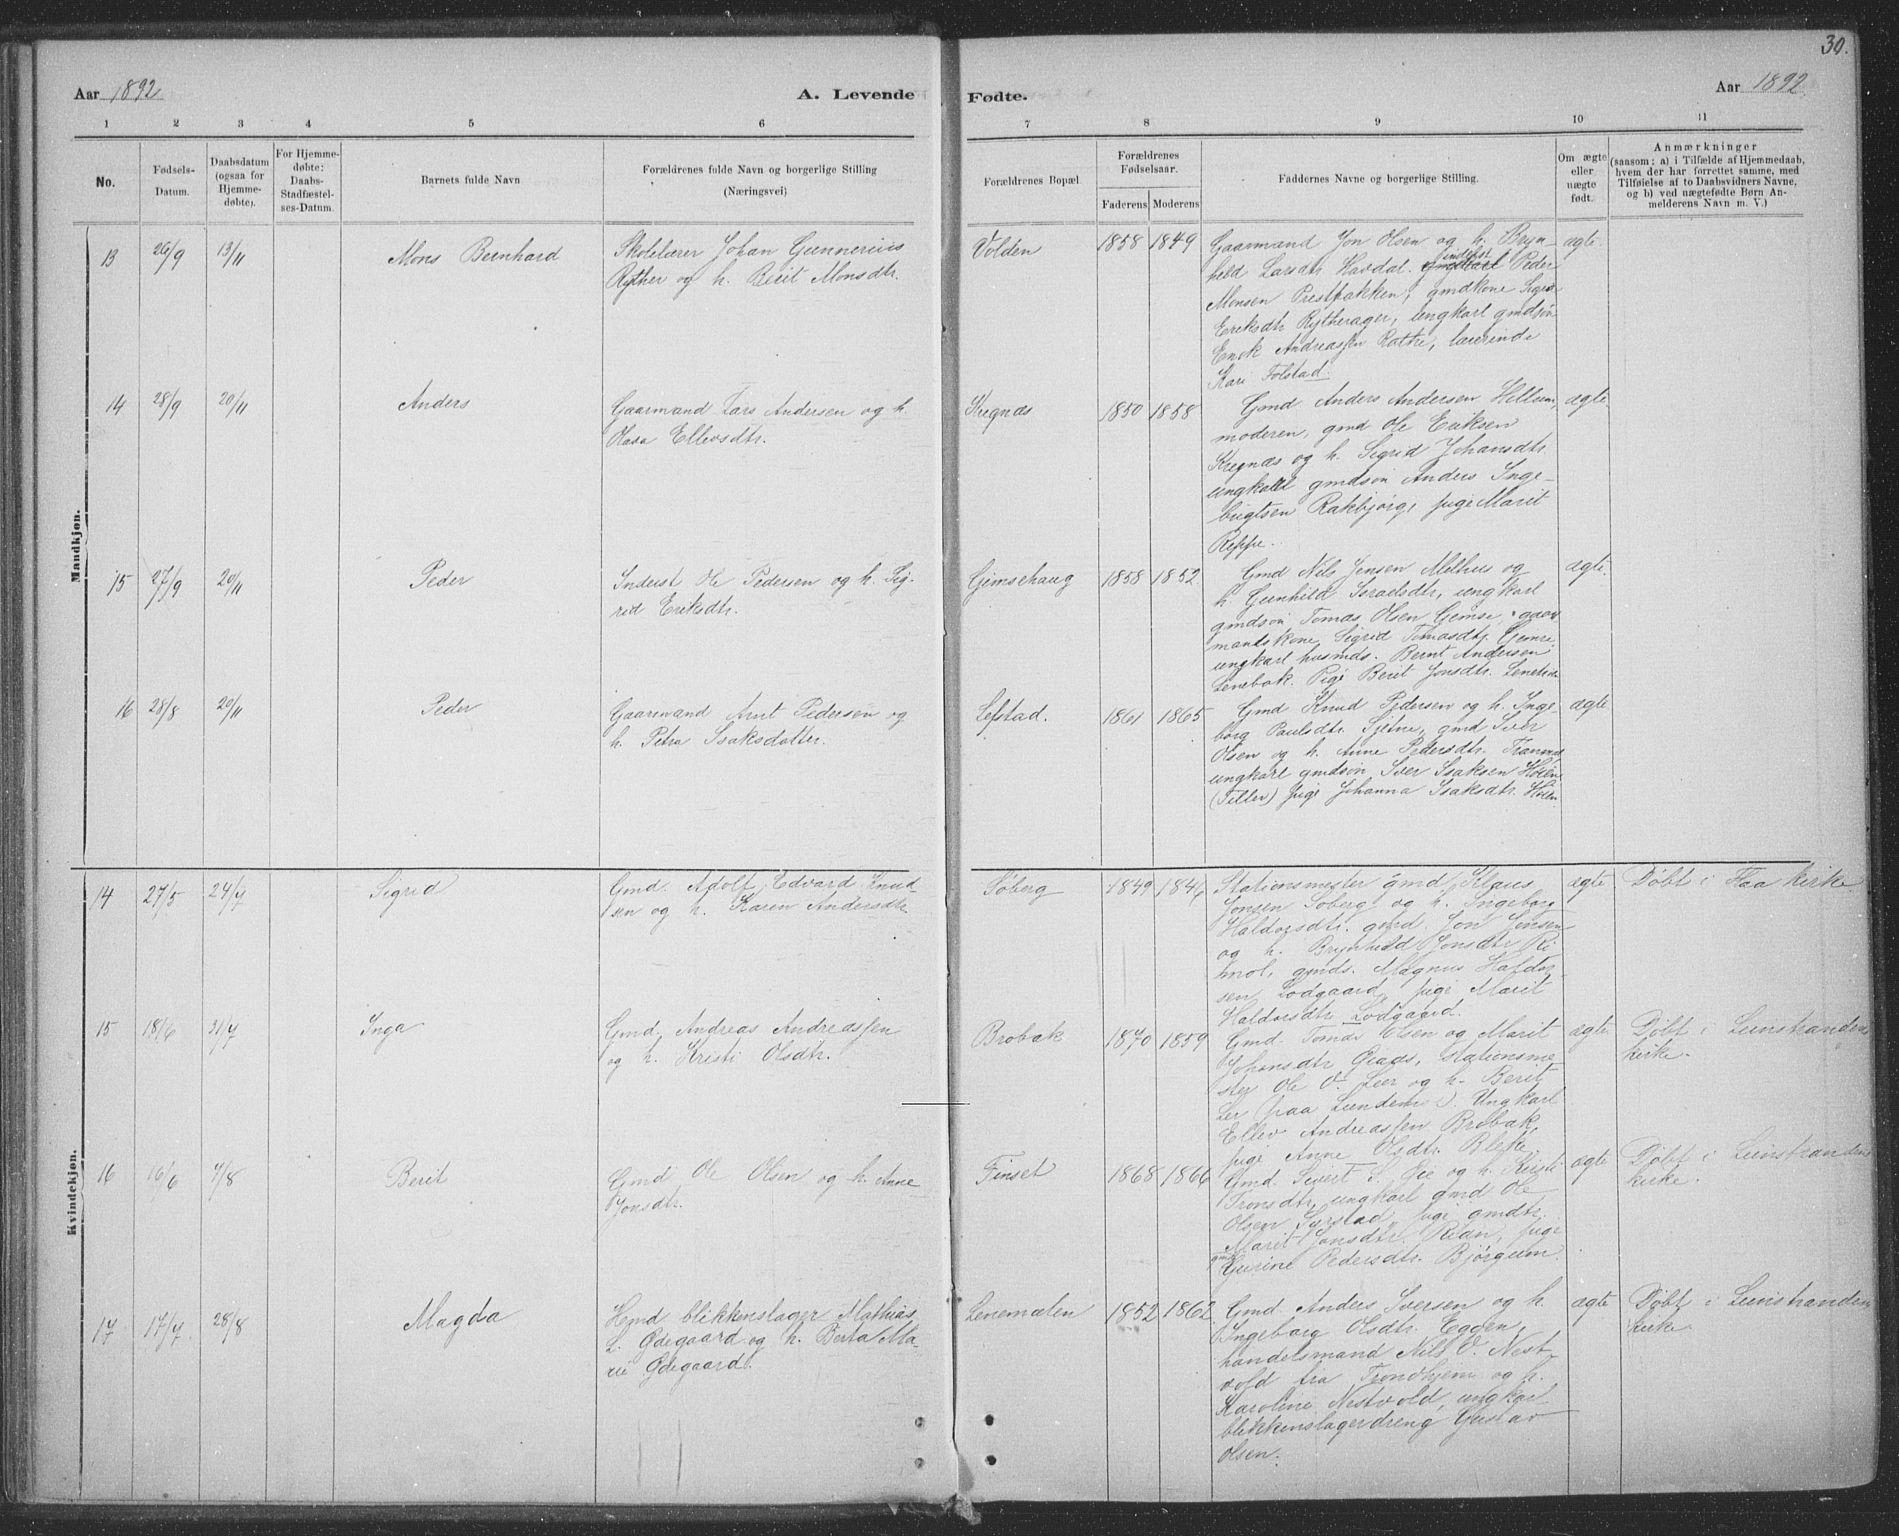 30.
Aar 1892
A. Levende
Fødte.
Aar 1892.
1 2 3 4 5 6 7 8 9 10 11
No.
Fødsels-
Datum.
Daabsdatum
(ogsaa for
Hjemme-
døbte).
For Hjemme-
døbte:
Daabs-
Stadfæstel-
ses-Datum.
Barnets fulde Navn
Forældrenes fulde Navn og borgerlige Stilling
(Næringsvei)
Forældrenes Bopæl.
Forældrenes
Fødselsaar.
Faderens Moderens
Faddernes Navne og borgerlige Stilling.
Om ægte
eller
uægte
født.
Anmærkninger
(saasom: a) i Tilfælde af Hjemmedaab,
hvem der har forrettet samme, med
Tilføielse af to Daabsvidners Navne,
og b) ved uægtefødte Børn An-
melderens Navn m. V.)
Mandkjøn.
13 26/9 13/11 Mons Bernhard
Skolelærer Johan Gunnerius
Ryther og h. Berit Monsdtr.
Volden
1858 1849
Gaarmand Jon Olsen og h. Bryn-
hild Larsdtr Havdal. inderst Peder
Monsen Prestbakken, gmdkone
Eriksdtr Rytherager, ungkarl gmdsøn
Enok Andreassen Rathe, lærerinde
Kari Folstad.
ægte.
14 28/9 20/11 Anders
Gaarmand Lars Andersen og h.
Olava Ellevsdtr.
Kregnæs
1850 1858
Gmd Anders Andersen Hellum,
moderen, gmd Ole Eriksen
Kregnæs og h. Sigrid Johansdtr.
ungkarl gmdsøn Anders Inge-
brigtsen Rakbjørg, pige Marit
Reppe.
ægte.
15 27/9 20/11 Peder
Inderst Ole Pedersen og h. Sig-
rid Eriksdtr.
Gimsehaug
1858 1852
Gmd Nils Jensen Melhus og
h. Gunhild Israelsdtr, ungkarl
gmdsøn Tomas Olsen Gimse, gaar-
mandskone Sigrid Tomasdtr. Gimse
ungkarl husmds. Bernt Andersen
Lenebak. Pige Berit Jonsdtr.
ægte.
16 28/8 20/11 Peder
Gaarmand Arnt Pedersen og
h. Petra Isaksdatter.
Lefstad.
1861 1865
Gmd Knud Pedersen og h. Inge-
borg Paulsdtr. Sjetne, gmd Iver
Olsen og h. Anne Pedersdtr.
ungkarl gmdsøn Iver Isaksen Høien
(Tiller) Pige Johanna Isaksdtr. Høien
ægte
Kvindekjøn.
14 27/5 24/7 Sigrid
Gmd. Adolf Edvard Knud-
sen og h. Karen Andersdtr
Søberg
1849 1846
Stationsmester gmd Klaus
Jonsen Søberg og h. Ingeborg
Haldorsdtr. gmd. Jon Jensen
og h. Brynhild Jonsdtr Ri-
mol, gmds. Magnus Haldor-
sen Lodgaard, pige Marit
Haldorsdtr Lodgaard.
ægte
Døbt i Flaa kirke
15 18/6 31/7 Inga
Gmd. Andreas Andreassen
og h. Kristi Olsdtr.
Brobak
1870 1859
Gmd. Tomas Olsen og Marit
Johansdtr Qvaas, stationsme-
ster Ole O. Leer og h. Berit
Ler paa Lundemo. Ungkarl
Ellev Andreassen Brobak,
pige Anne Olsdtr. Blekt
ægte
Døbt i Leinstrandens
kirke.
16 16/6 7/8 Berit
Gmd Ole Olsen og h. Anne
Jonsdtr.
Finset
1868 1866
Gmd. Sivert S. Øie og h. Kirsti
Tronsdtr, ungkarl gmd Ole
Olsen, pige gmdtr.
Marit Jonsdtr. Kvan, pige
gmd Gurine Pedersdtr. Bjørgum.
ægte
Døbt i Leinstrandens
kirke.
17 17/7 28/8 Magda
Hemd blikkenslager Mathias
L. Ødegaard og h. Berta Ma-
rie Ødegaard.
Lenemælen
1852 1862
Gmd. Anders Iversen og h.
Ingeborg Olsdtr. Eggen,
handelsmand Nils O. Nest-
vold fra Trondhjem og h.
Karoline Nestvold, ungkarl
blikkenslagerdreng Gustav
Olsen.
ægte
Døbt i Leinstrandens
kirke